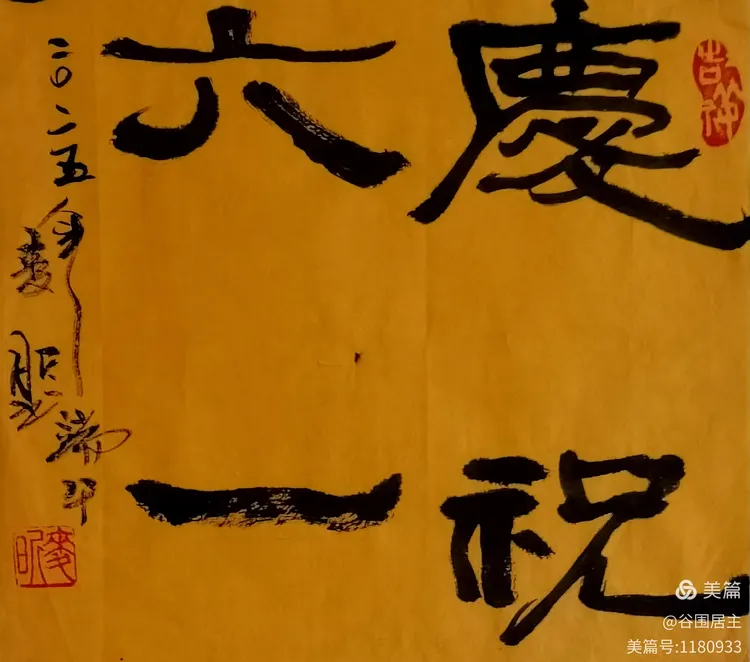 慶祝
六一
二〇二五
吉祥
美篇
@谷围居主
美篇号:1180933